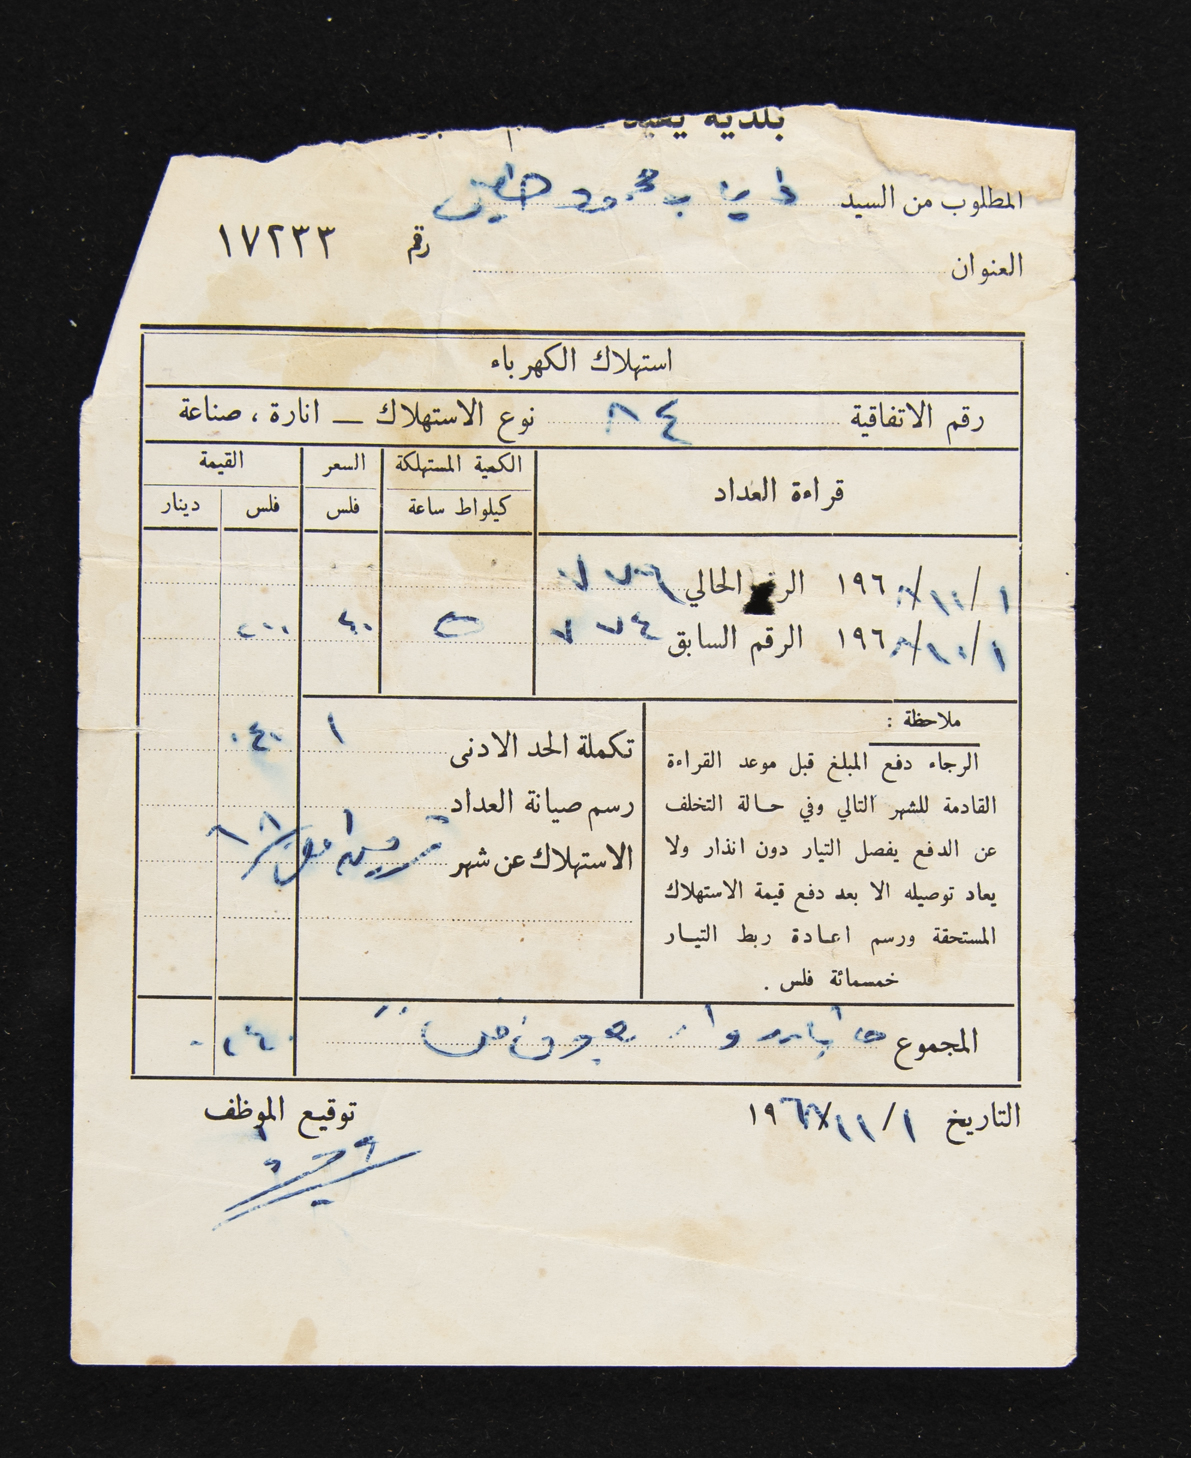 بلدية يعبد
المطلوب من السيد ذياب محمود
العنوان
رقم ١٧٢٣٣
استهلاك الكهرباء
رقم الاتفاقية ٨٤ نوع الاستهلاك — انارة ، صناعة
قراءة العداد الكمية المستهلكة السعر القيمة
كيلواط ساعة فلس فلس دينار
١/١٠/ ١٩٦ الرقم الحالي ٧٧٦
١/١٠/ ١٩٦ الرقم السابق ٧٧٤ ٢٠٠
ملاحظة :
الرجاء دفع المبلغ قبل موعد القراءة
القادمة للشهر التالي وفي حالة التخلف
عن الدفع يفصل التيار دون انذار ولا
يعاد توصيله الا بعد دفع قيمة الاستهلاك
المستحقة ورسم اعادة ربط التيار
خمسمائة فلس .
تكملة الحد الادنى ١ ٠٤٠
رسم صيانة العداد
الاستهلاك عن شهر
المجموع ٢٤٠
التاريخ ١/١١/ ١٩٦
توقيع الموظف